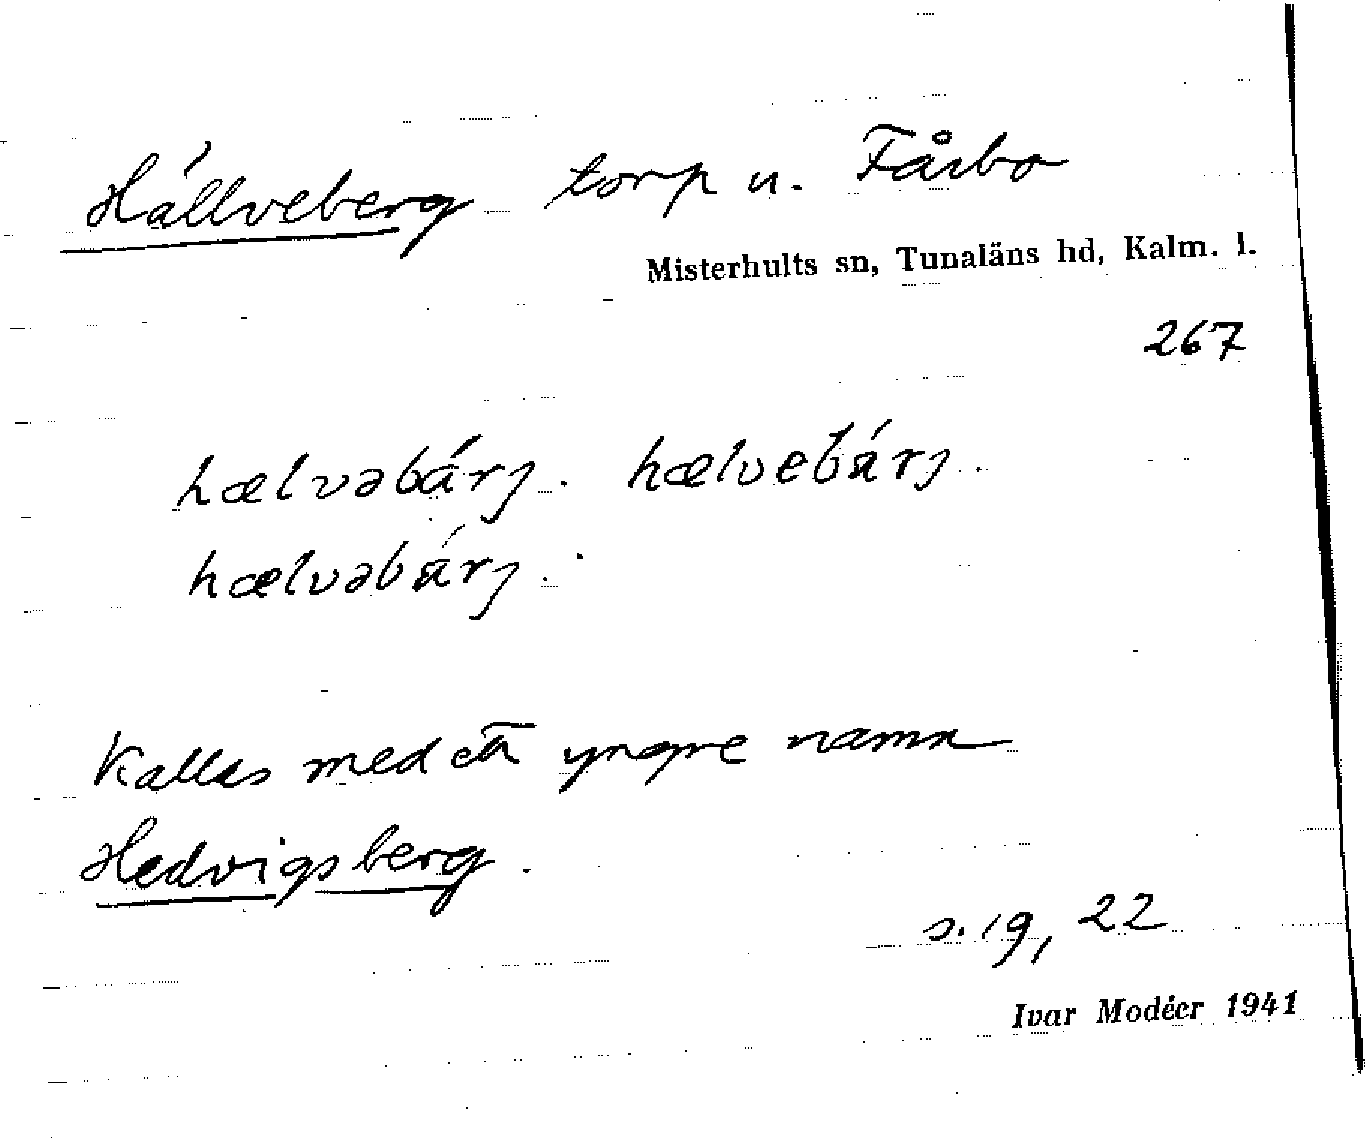 Hällveberg torp u. Fårbo
Misterhults sn, Tunaläns hd, Kalm. l.
267
hælvəbárj. hælvebárj.
hælvəbárj.
Kallas med ett yngre namn
Hedvigsberg.
s. 19, 22
Ivar Modéer 1941